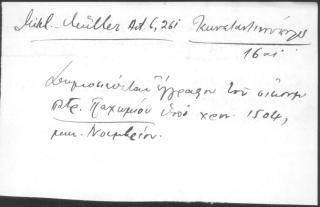 Mikl.-Müller Act. 6, 261 Κωνσταντινούπολις
16 αἰ
Δημοσιεύεται ἔγγραφον τοῦ οἰκουμ
πτρ. Παχωμίου ὑπὸ χρον. 1504,
μην. Νοεμβρίου.